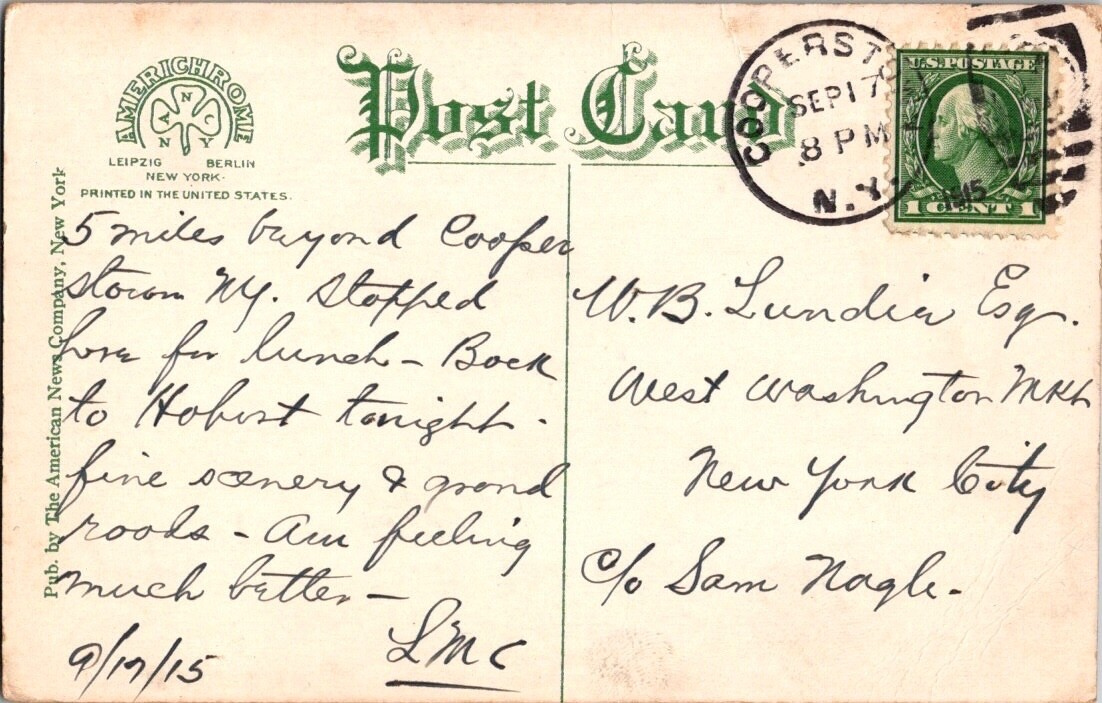 AMERICHROME
N
A C
N Y
LEIPZIG BERLIN
NEW YORK.
PRINTED IN THE UNITED STATES.
Post Card
COOPERSTO
SEP 17
8 PM
N.Y.
1915
U.S. POSTAGE
1 CENT 1
Pub. by The American News Company, New York
5 miles beyond Cooper
stown NY. Stopped
here for lunch – Back
to Hobart tonight.
fine scenery & grand
roads – Am feeling
much better –
9/17/15 LMC
W. B. Lundie Esq.
West Washington Mkt
New York City
c/o Sam Nagle –